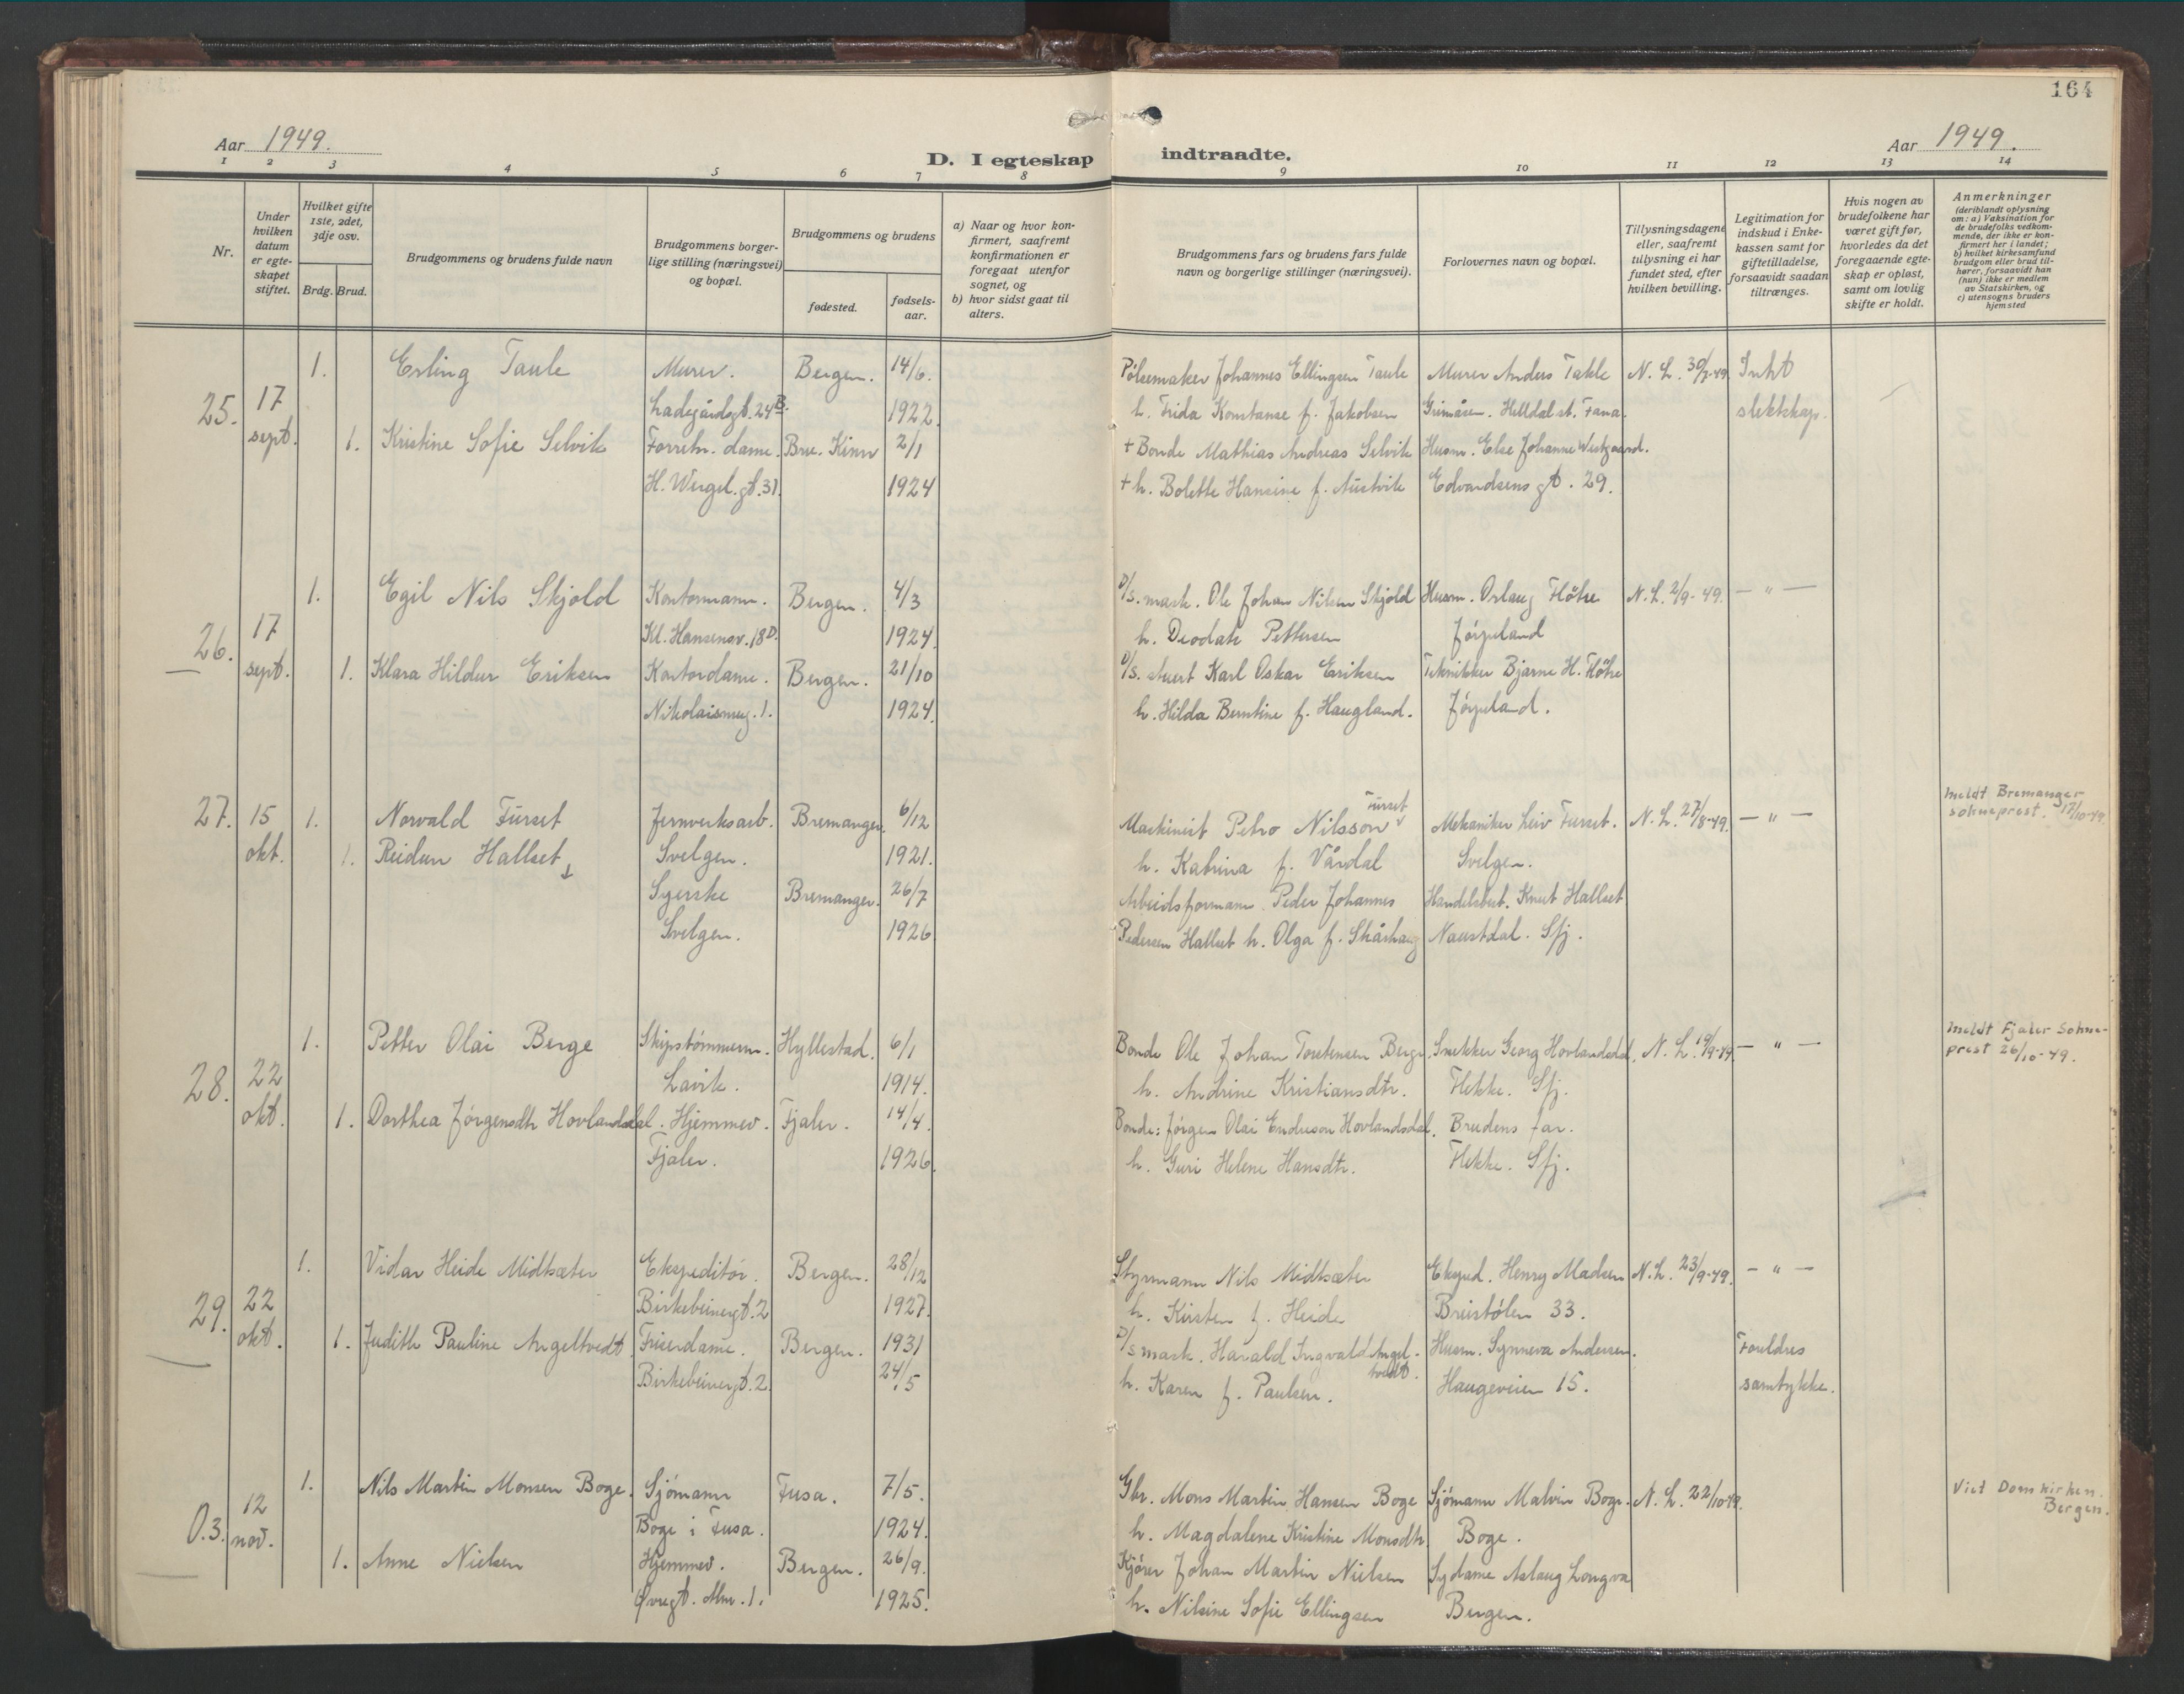 164
Aar 1949.
D. I egteskap indtraadte.
Aar 1949.
1 2 3 4 5 6 7 8 9 10 11 12 13 14
Nr.
Under hvilken datum er egteskapet stiftet.
Hvilket gifte 1ste, 2det, 3dje osv.
Brdg. Brud.
Brudgommens og brudens fulde navn
Brudgommens borgerlige stilling (næringsvei) og bopæl.
Brudgommens og brudens
fødested.
fødselsaar.
a) Naar og hvor konfirmert, saafremt konfirmationen er foregaat utenfor sognet, og
b) hvor sidst gaat til alters.
Brudgommens fars og brudens fars fulde navn og borgerlige stillinger (næringsvei).
Forlovernes navn og bopæl.
Tillysningsdagene eller, saafremt tillysning ei har fundet sted, efter hvilken bevilling.
Legitimation for indskud i Enkekassen samt for giftetilladelse, forsaavidt saadan tiltrænges.
Hvis nogen av brudefolkene har været gift før, hvorledes da det foregaaende egteskap er opløst, samt om lovlig skifte er holdt.
Anmerkninger
(deriblandt oplysning om: a) Vaksination for de brudefolks vedkommende, der ikke er konfirmert her i landet; b) hvilket kirkesamfund brudgom eller brud tilhører, forsaavidt han (hun) ikke er medlem av Statskirken, og c) utensogns bruders hjemsted
1. Erling Taule Murer. Bergen. 14/6. Pølsemaker Johannes Ellingsen Taule Murer Anders Takle N. L. 30/7-49. Intet
25. 17 Ladegårdsgt. 24 B. 1922. h. Frida Konstanse f. Jakobsen Grimåsen. Helldal st. Fana. slektskap.
sept. 1. Kristine Sofie Selvik Forretn. dame. Bru. Kinn 2/1 + Bonde Mathias Andreas Selvik Husm. Else Johanne Westgaard.
H. Wergel. gt. 31. 1924 + h. Bolette Hansine f. Austvik Edvardsens gt. 29.
1. Egil Nils Skjold Kontormann. Bergen. 4/3 D/S. mask. Ole Johan Nilsen Skjold Husm. Orlaug Fløtre N. L. 2/9-49. — " —
26. 17 Kl. Hansensv. 18 D. 1924. h. Deodate Pettersen Jørpeland
sept. 1. Klara Hildur Eriksen Kontordame. Bergen. 21/10 D/S. stuert Karl Oskar Eriksen Tekniker Bjarne H. Fløtre
Nikolaismug. 1. 1924. h. Hilda Berntine f. Haugland. Jørpeland.
27. 15 1. Norvald Furset Jernverksarb. Bremanger. 6/12 Maskinist Petro Nilsson Furset Mekaniker Leiv Furset. N. L. 27/8-49. — " — Meldt Bremanger sokneprest. 17/10-49.
okt. 1. Reidun Hallset Svelgen. 1921. h. Katrina f. Vårdal Svelgen.
Syerske Bremanger. 26/7 Arbeidsformann Peder Johannes Handelsbest. Knut Hallset
Svelgen. 1926 Pedersen Hallset h. Olga f. Skårhaug Naustdal. Sfj.
1. Petter Olai Berge Skipstømmerm. Hyllestad. 6/1 Bonde Ole Johan Torstensen Berge. Snekker Georg Hovlandsdal. N. L. 19/9-49 — " — Meldt Fjaler Sokneprest 26/10-49.
28. 22 Lavik. 1914. h. Andrine Kristiansdtr. Flekke. Sfj.
okt. 1. Dorthea Jørgensdtr Hovlandsdal. Hjemmev. Fjaler. 14/4. Bonde: Jørgen Olai Endreson Hovlandsdal. Brudens far.
Fjaler. 1926. h. Guri Helene Hansdtr. Flekke. Sfj.
1. Vidar Heide Midtsæter Ekspeditør. Bergen. 28/12 Styrmann Nils Midtsæter Eksped. Henry Madsen N. L. 23/9-49. — " —
29. 22 Birkebeinergt. 2 1927. h. Kirsten f. Heide Breistølen 33.
okt. 1. Judith Pauline Angeltvedt Friserdame. Bergen. 1931 D/S mask. Harald Ingvald Angeltvedt. Husm. Synneva Andersen. Foreldres
Birkebeinergt. 2. 24/5 h. Karen f. Paulsen. Haugeveien 15. samtykke.
1. Nils Martin Monsen Boge. Sjømann Fusa. 7/5. Gbr. Mons Martin Hansen Boge Sjømann Malvin Boge. N. L. 22/10-49. Viet Domkirken. Bergen.
O.3. 12 Boge i Fusa. 1924. h. Magdalene Kristine Monsdtr. Boge.
nov. 1. Anne Nielsen Hjemmev. Bergen. 26/9. Kjører Johan Martin Nielsen Sydame Aslaug Longva
Øvregt. Alm. 1. 1925. h. Nilsine Sofie Ellingsen Bergen.